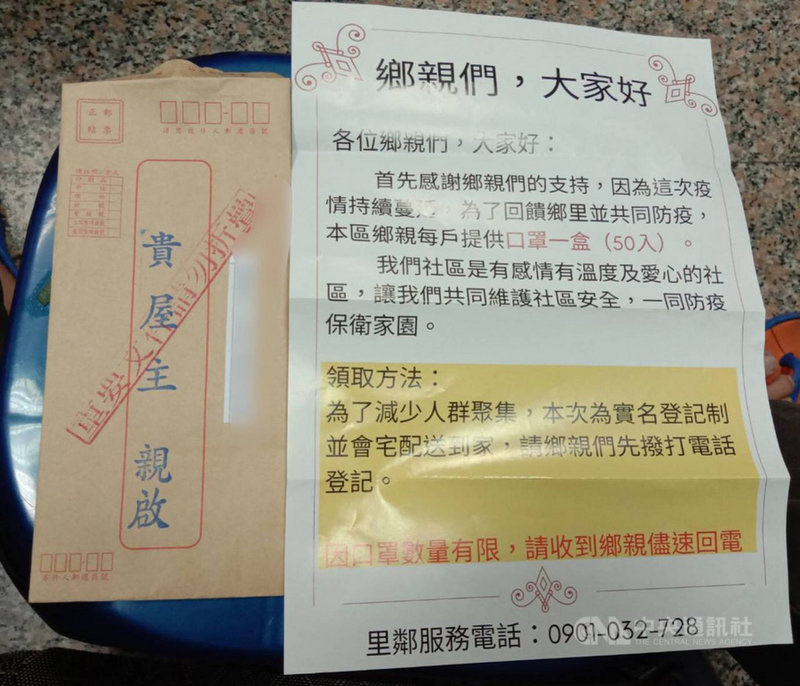 正 郵
貼 票
請寫收件人郵遞區號
重要文件請勿折疊
貴屋主 親啟
寄件人郵遞區號
鄉親們，大家好
各位鄉親們，大家好：
首先感謝鄉親們的支持，因為這次疫
情持續蔓延，為了回饋鄉里並共同防疫，
本區鄉親每戶提供口罩一盒（50入）。
我們社區是有感情有溫度及愛心的社
區，讓我們共同維護社區安全，一同防疫
保衛家園。
領取方法：
為了減少人群聚集，本次為實名登記制
並會宅配送到家，請鄉親們先撥打電話
登記。
因口罩數量有限，請收到鄉親儘速回電
里鄰服務電話：0901-032-728
中央通訊社
THE CENTRAL NEWS AGENCY